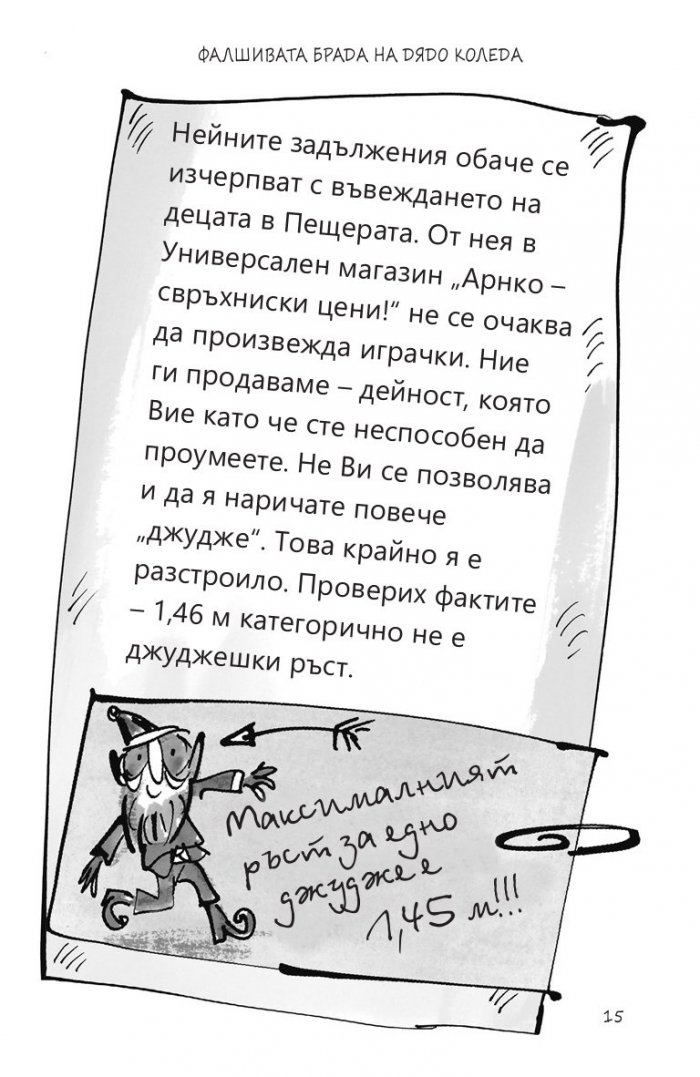 ФАЛШИВАТА БРАДА НА ДЯДО КОЛЕДА
Нейните задължения обаче се
изчерпват с въвеждането на
децата в Пещерата. От нея в
Универсален магазин „Арнко –
свръхниски цени!“ не се очаква
да произвежда играчки. Ние
ги продаваме – дейност, която
Вие като че сте неспособен да
проумеете. Не Ви се позволява
и да я наричате повече
„джудже“. Това крайно я е
разстроило. Проверих фактите
– 1,46 м категорично не е
джуджешки ръст.
Максималният
ръст за едно
джудже е
1,45 м!!!
15